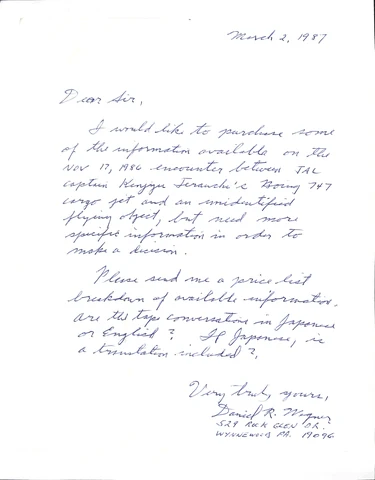 March 2, 1987
Dear Sir,
I would like to purchase some
of the information available on the
Nov 17, 1986 encounter between JAL
captain Kenjyu Terauchi's Boeing 747
cargo jet and an unidentified
flying object, but need more
specific information in order to
make a decision.
Please send me a price list
breakdown of available information.
Are the tape conversations in Japanese
or English? If Japanese, is
a translation included?
Very truly yours,
Daniel R. Wagner
529 ROCK GLEN DR.
WYNNEWOOD PA. 19096